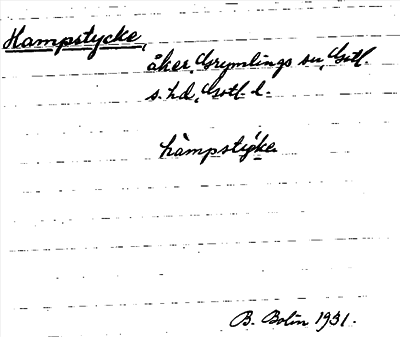 Hampstycke,
åker, Grymlings su, Gotl.
s. hd, Gotl. l.
hàmpstýke
B. Bolin 1931.